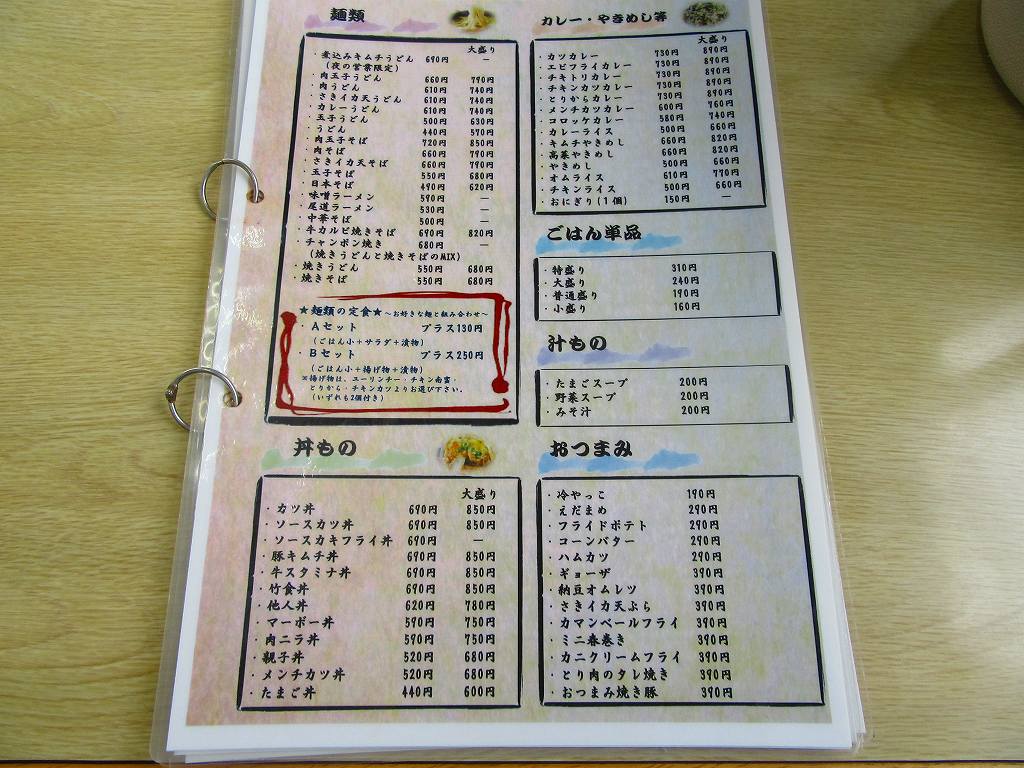 麺類
大盛り
・煮込みキムチうどん 690円 ―
(夜の営業限定)
・肉玉子うどん 660円 790円
・肉うどん 610円 740円
・さきイカ天うどん 610円 740円
・カレーうどん 610円 740円
・玉子うどん 500円 630円
・うどん 440円 570円
・肉玉子そば 720円 850円
・肉そば 660円 790円
・さきイカ天そば 660円 790円
・玉子そば 550円 680円
・日本そば 490円 620円
・味噌ラーメン 590円 ―
・尾道ラーメン 530円 ―
・中華そば 500円 ―
・牛カルビ焼きそば 690円 820円
・チャンポン焼き 680円 ―
(焼きうどんと焼きそばのMIX)
・焼きうどん 550円 680円
・焼きそば 550円 680円
★麺類の定食★ ~お好きな麺と組み合わせ~
・Aセット プラス130円
(ごはん小+サラダ+漬物)
・Bセット プラス250円
(ごはん小+揚げ物+漬物)
※揚げ物は、ユーリンチー・チキン南蛮・
とりから・チキンカツよりお選び下さい。
(いずれも2個付き)
丼もの
大盛り
・カツ丼 690円 850円
・ソースカツ丼 690円 850円
・ソースカキフライ丼 690円 ―
・豚キムチ丼 690円 850円
・牛スタミナ丼 690円 850円
・竹食丼 690円 850円
・他人丼 620円 780円
・マーボー丼 590円 750円
・肉ニラ丼 590円 750円
・親子丼 520円 680円
・メンチカツ丼 520円 680円
・たまご丼 440円 600円
カレー・やきめし等
大盛り
・カツカレー 730円 890円
・エビフライカレー 730円 890円
・チキトリカレー 730円 890円
・チキンカツカレー 730円 890円
・とりからカレー 730円 890円
・メンチカツカレー 600円 760円
・コロッケカレー 580円 740円
・カレーライス 500円 660円
・キムチやきめし 660円 820円
・高菜やきめし 660円 820円
・やきめし 500円 660円
・オムライス 610円 770円
・チキンライス 500円 660円
・おにぎり(1個) 150円 ―
ごはん単品
・特盛り 310円
・大盛り 240円
・普通盛り 190円
・小盛り 160円
汁もの
・たまごスープ 200円
・野菜スープ 200円
・みそ汁 200円
おつまみ
・冷やっこ 190円
・えだまめ 290円
・フライドポテト 290円
・コーンバター 290円
・ハムカツ 290円
・ギョーザ 390円
・納豆オムレツ 390円
・さきイカ天ぷら 390円
・カマンベールフライ 390円
・ミニ春巻き 390円
・カニクリームフライ 390円
・とり肉のタレ焼き 390円
・おつまみ焼き豚 390円